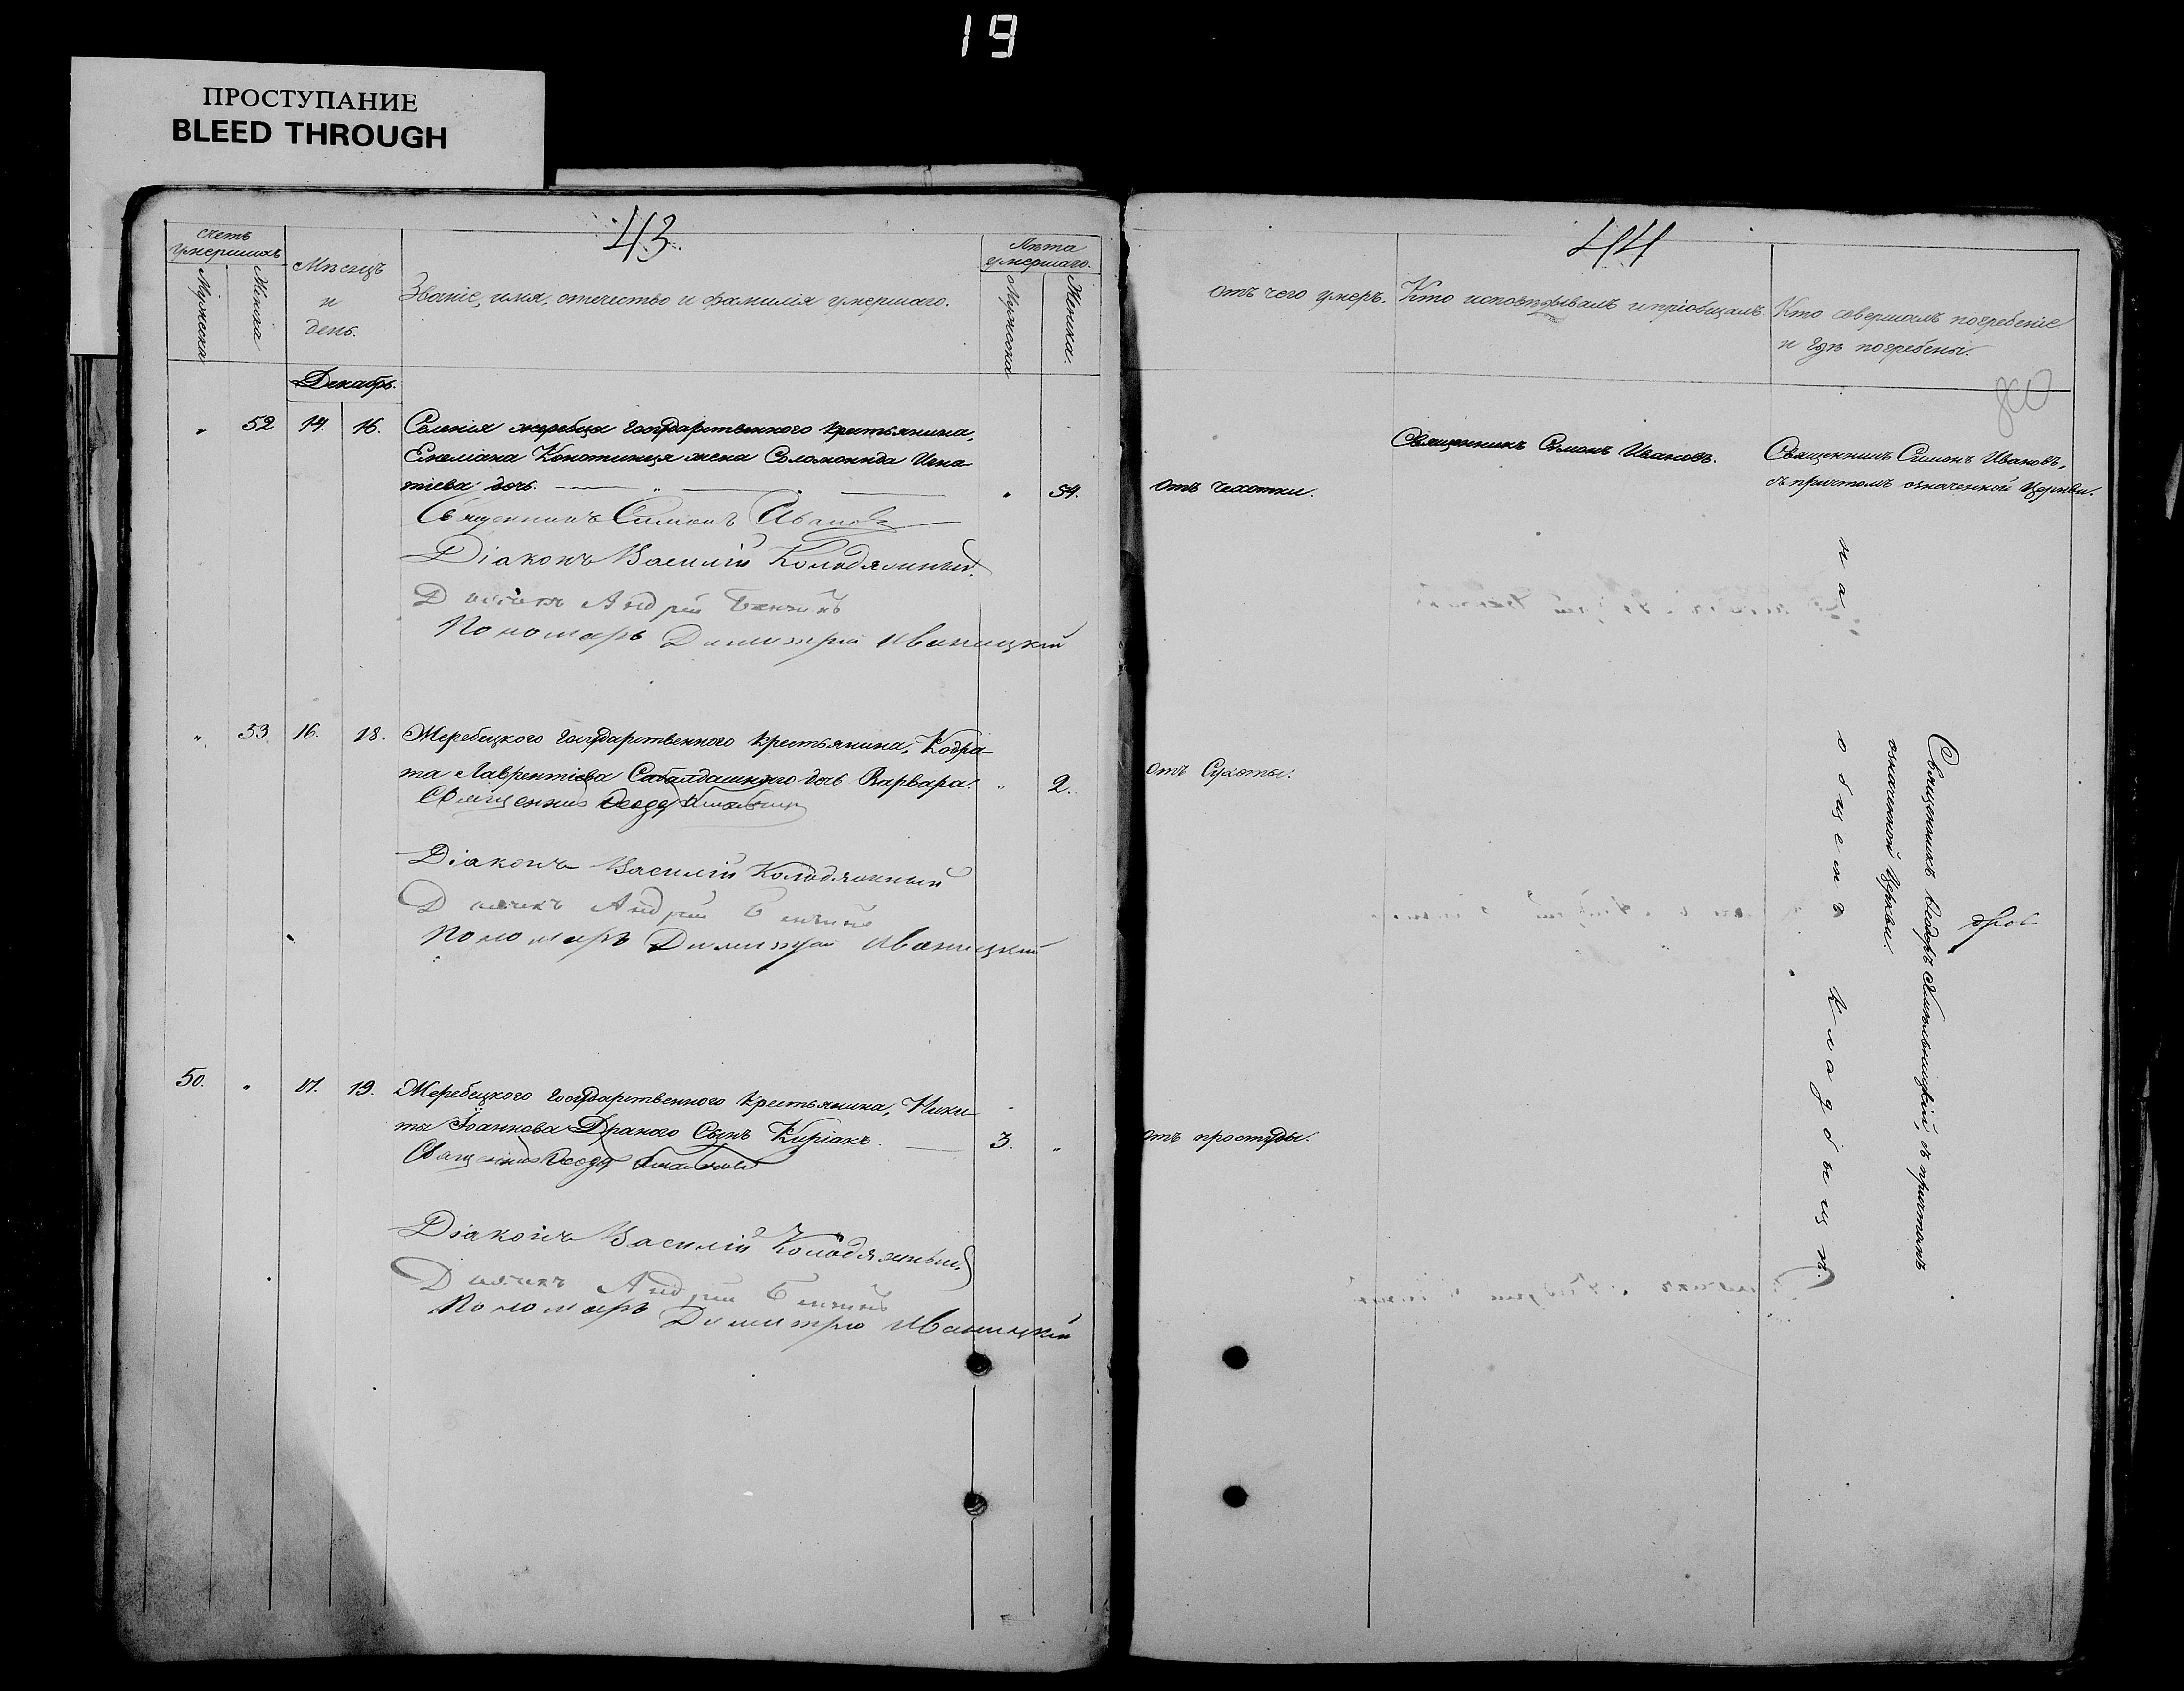 19
ПРОСТУПАНИЕ
BLEED THROUGH
43
Счетъ умершихъ
Мужеска
Женска
Мѣсяцъ и день.
Званіе, имя, отечество и фамилія умершаго.
Лѣта умершаго.
Мужеска
Женска.
Декабрь.
" 52 14. 16. Селенія жеребца государственного крестьянина,
Емеліана Конотинця жена Соломонида Игна
тіева дочь. " 54.
Священникъ Симонъ Ивановъ
Діаконъ Василій Колодяжный.
Дьячекъ Андрей
Пономарь Димитрій Иваницкій
" 53 16. 18. Жеребецкого государственного крестьянина, Кодра-
та Лаврентіева дочь Варвара. " 2.
Священникъ Ѳеодоръ
Діаконъ Василій Колодяжный
Дьячекъ Андрей
Пономарь Димитрій Иваницкій
50. " 17. 19. Жеребецкого государственного крестьянина, Ники-
ты Іоаннова Драного Сынъ Киріакъ. 3. "
Священникъ Ѳеодоръ
Діаконъ Василій Колодяжный
Дьячекъ Андрей
Пономарь Димитрій Иваницкій
44
отъ чего умеръ.
Кто исповѣдывалъ и пріобщалъ.
Кто совершалъ погребеніе
и гдѣ погребены.
80
отъ чахотки.
Священникъ Симонъ Ивановъ.
Священникъ Симонъ Ивановъ,
съ причтомъ означенной Церкви.
отъ Сухоты.
отъ простуды.
на общемъ кладбищѣ.
Священникъ Ѳеодоръ Хмѣльницкій, съ причтомъ
означенной Церкви.